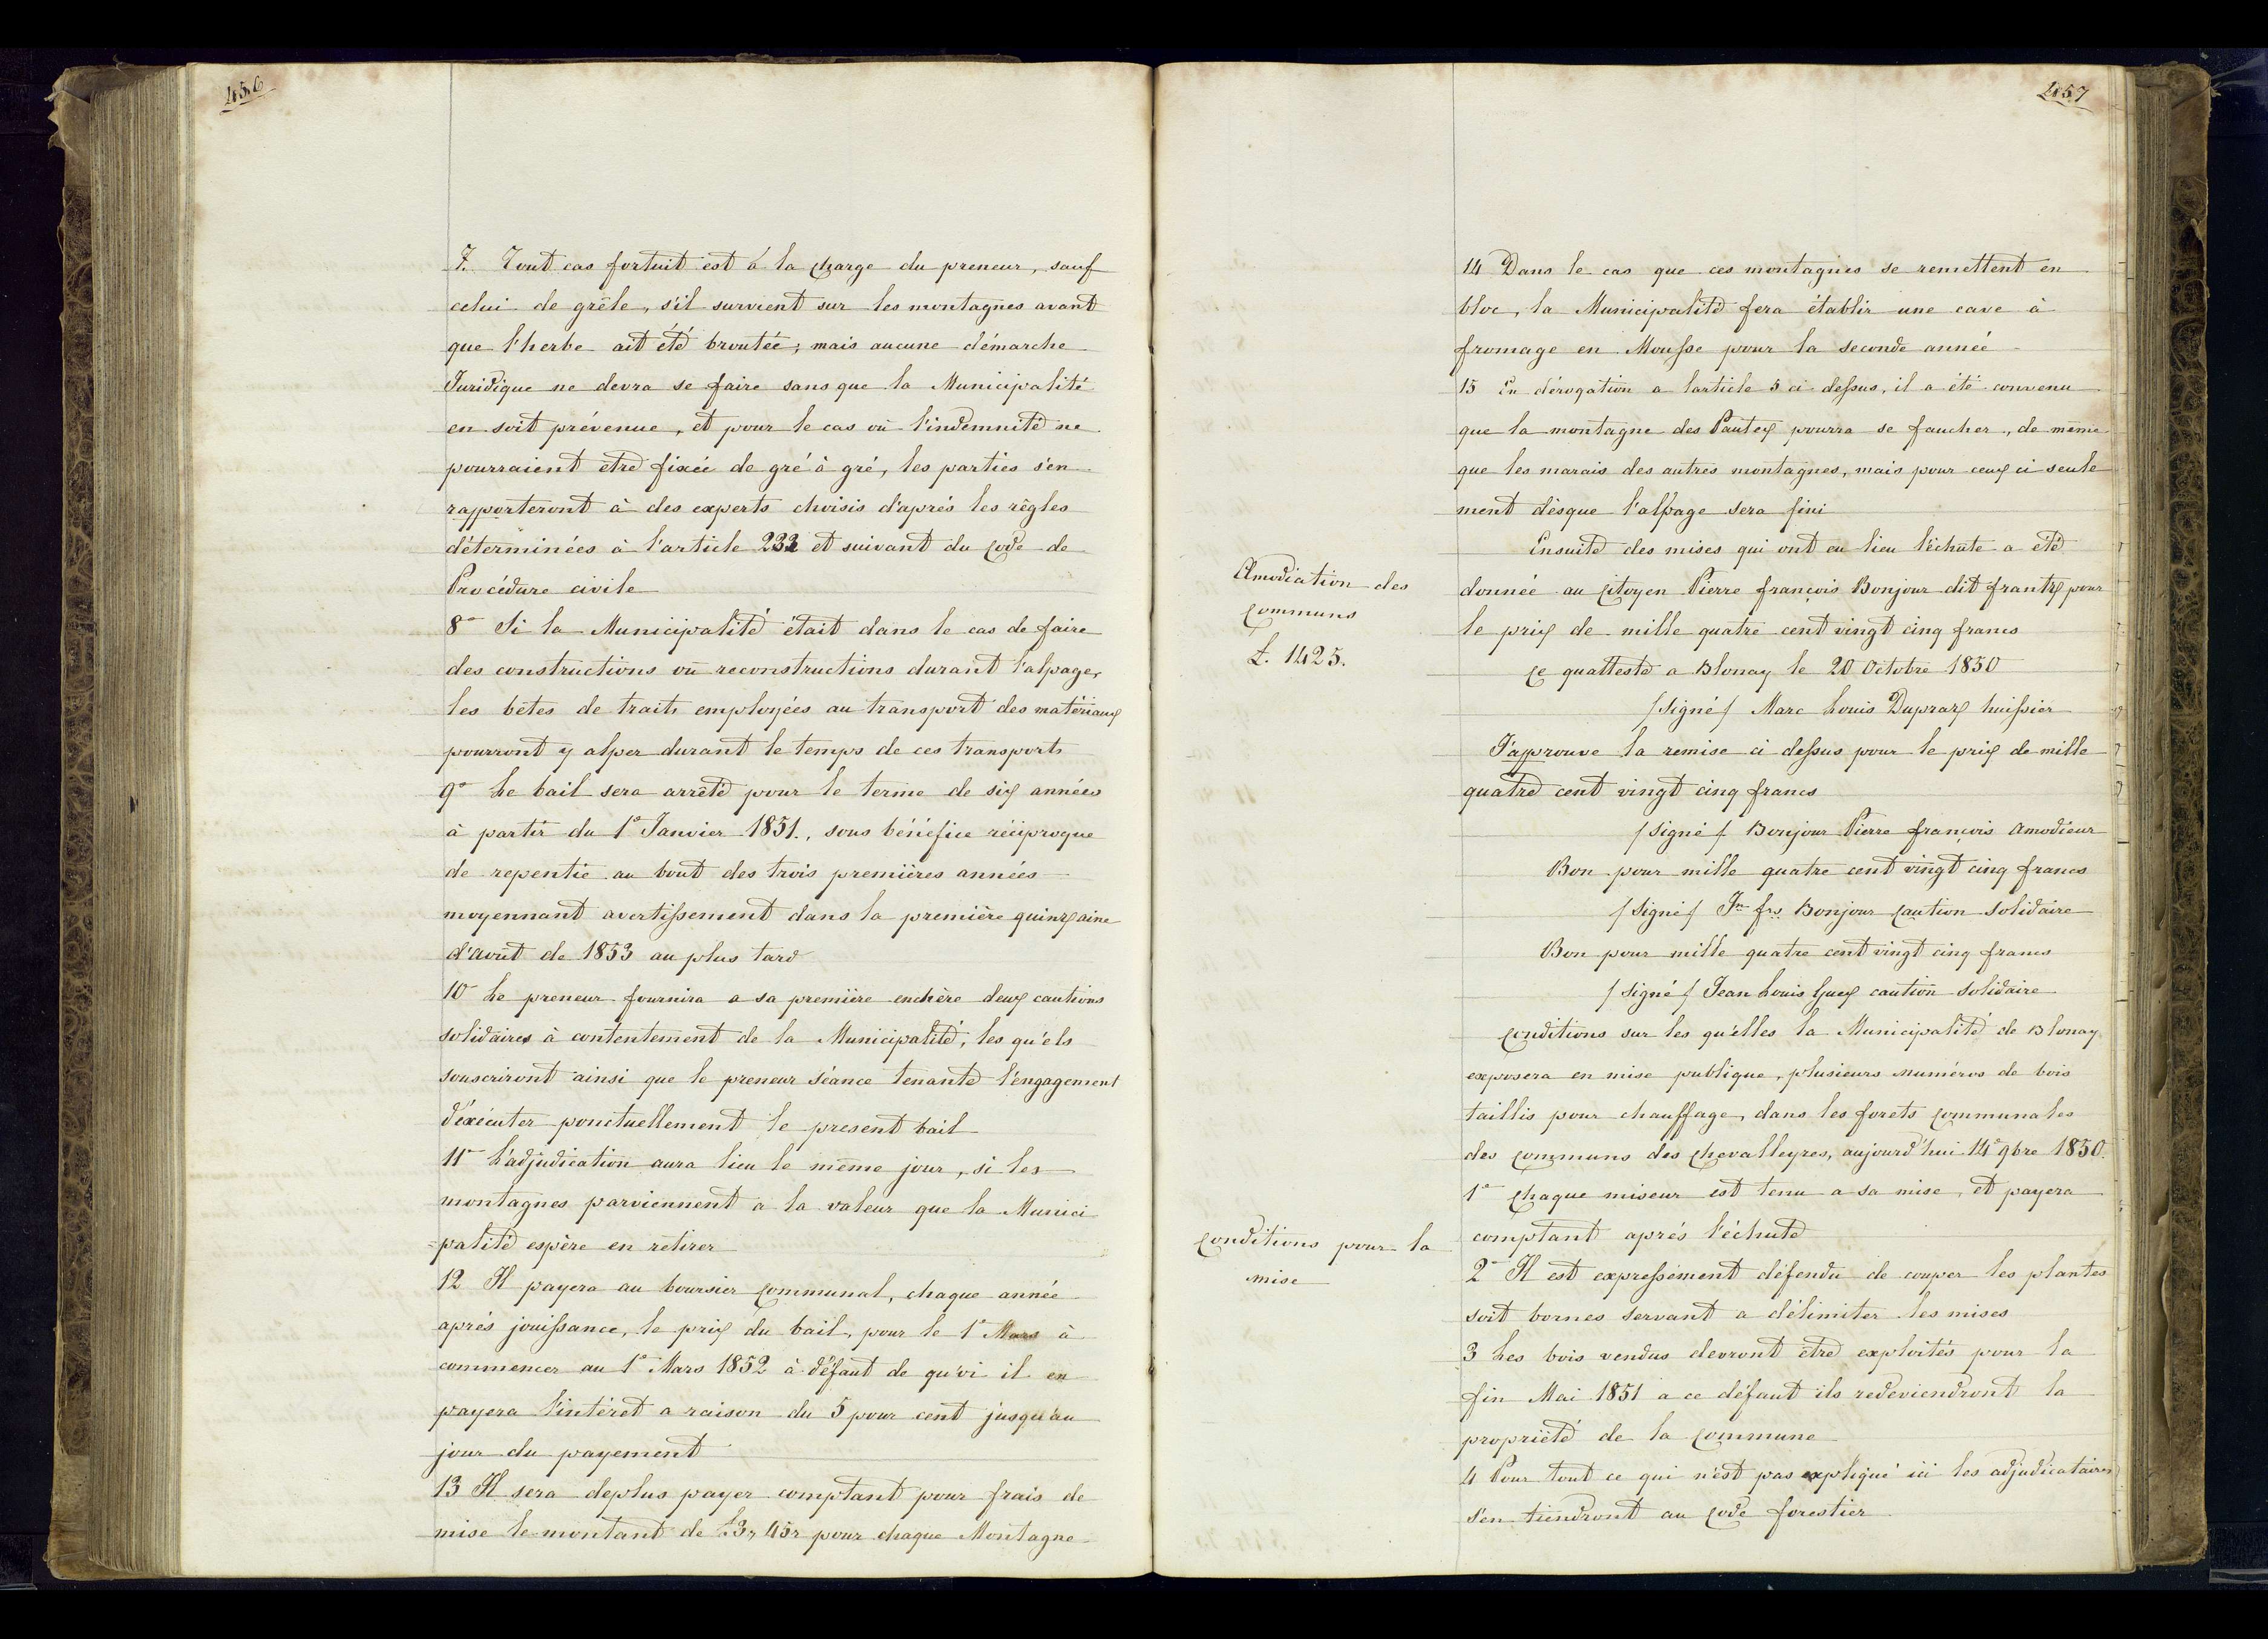 456
7. Tout cas fortuit est à la charge du preneur, sauf
celui de grêle, s'il survient sur les montagnes avant
que l'herbe ait été broutée; mais aucune démarche
Juridique ne devra se faire sans que la Municipalité
en soit prévenue, et pour le cas où l'indemnité ne
pourraient être fixée de gré à gré, les parties s'en
rapporteront à des experts choisis d'aprés les règles
déterminées à l'article et suivant du Code de
Procédure civile
8° Si la Municipalité était dans le cas de faire
des constructions où reconstructions durant l'alpage,
les bêtes de traits employées au transport des matériaux
pourront y alper durant le temps de ces transports
9° Le bail sera arrêté pour le terme de six années
à partir du 1° Janvier 1851., sous bénéfice réciproque
de repentie au bout des trois premières années
moyennant avertissement dans la première quinzaine
d'août de 1853 au plus tard
10° Le preneur fournira a sa première enchère deux cautions
solidaires à contentement de la Municipalité, les qu'els
souscriront ainsi que le preneur séance tenante l'engagement
d'éxécuter ponctuellement le present bail
11° L'adjudication aura lieu le même jour, si les
montagnes parviennent a la valeur que la Munici
=palité espère en retirer
12 Il payera au boursier Communal, chaque année
aprés jouissance, le prix du bail, pour le 1° Mars à
commencer au 1° Mars 1852 à défaut de qu'oi il en
payera l'intéret a raison du 5 pour cent jusqu'au
jour du payement
13 Il sera deplus payer comptant pour frais de
mise le montant de L3, 45r pour chaque Montagne
457
14 Dans le cas que ces montagnes se remettent en
bloc, la Municipalité fera établir une cave à
fromage en Mousse pour la seconde année
15 En dérogation a larticle 5 ci dessus, il a été convenu
que la montagne des Pautex pourra se faucher, de même
que les marais des autres montagnes, mais pour ceux ci seule
ment dèsque l'alpage sera fini
Ensuite des mises qui ont eu lieu l'échute a été
Amodiation des
Communs
L. 1425.
donnée au Citoyen Pierre françois Bonjour dit frantz pour
le prix de mille quatre cent vingt cinq francs
Ce quatteste a Blonay le 20 Octobre 1850
/Signé/ Marc Louis Dupraz huissier
J'approuve la remise ci dessus pour le prix de mille
quatre cent vingt cinq francs
/signé/ Bonjour Pierre françois Amodieur
Bon pour mille quatre cent vingt cinq francs
/Signé/ Jn fs Bonjour Caution Solidaire
Bon pour mille quatre cent vingt cinq francs
/Signé/ Jean Louis Guex caution Solidaire
Conditions sur les qu'elles la Municipalité de Blonay
exposera en mise publique, plusieurs numéros de bois
taillis pour chauffage, dans les forets Communales
des Communs des Chevalleyres, aujourd'hui 14° 9bre 1850.
1° Chaque miseur est tenu a sa mise, et payera
Conditions pour la
mise
comptant aprés l'échute
2° Il est expressément défendu de couper les plantes
soit bornes servant a délimiter les mises
3 Les bois vendus devront être exploités pour la
fin Mai 1851 a ce défaut ils redeviendront la
propriété de la Commune
4 Pour tout ce qui n'est pas expliqué ici les adjudicataires
s'en tiendront au Code forestier